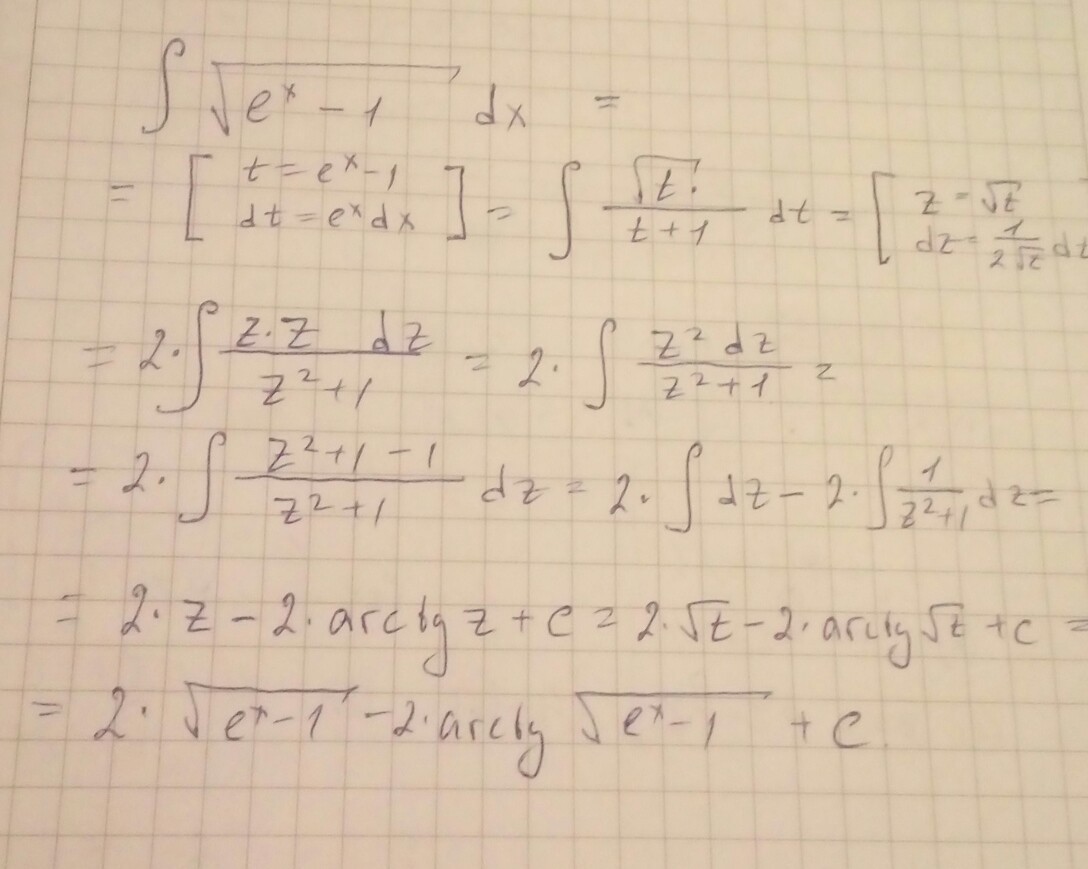 ∫ √(e^x − 1) dx =
= [ t = e^x − 1 ; dt = e^x dx ] = ∫ √t / (t + 1) dt = [ z = √t ; dz = 1/(2√t) dt
= 2·∫ (z·z dz)/(z² + 1) = 2·∫ (z² dz)/(z² + 1) =
= 2·∫ (z² + 1 − 1)/(z² + 1) dz = 2·∫ dz − 2·∫ 1/(z² + 1) dz =
= 2·z − 2·arctg z + c = 2·√t − 2·arctg √t + c =
= 2·√(e^x − 1) − 2·arctg √(e^x − 1) + c